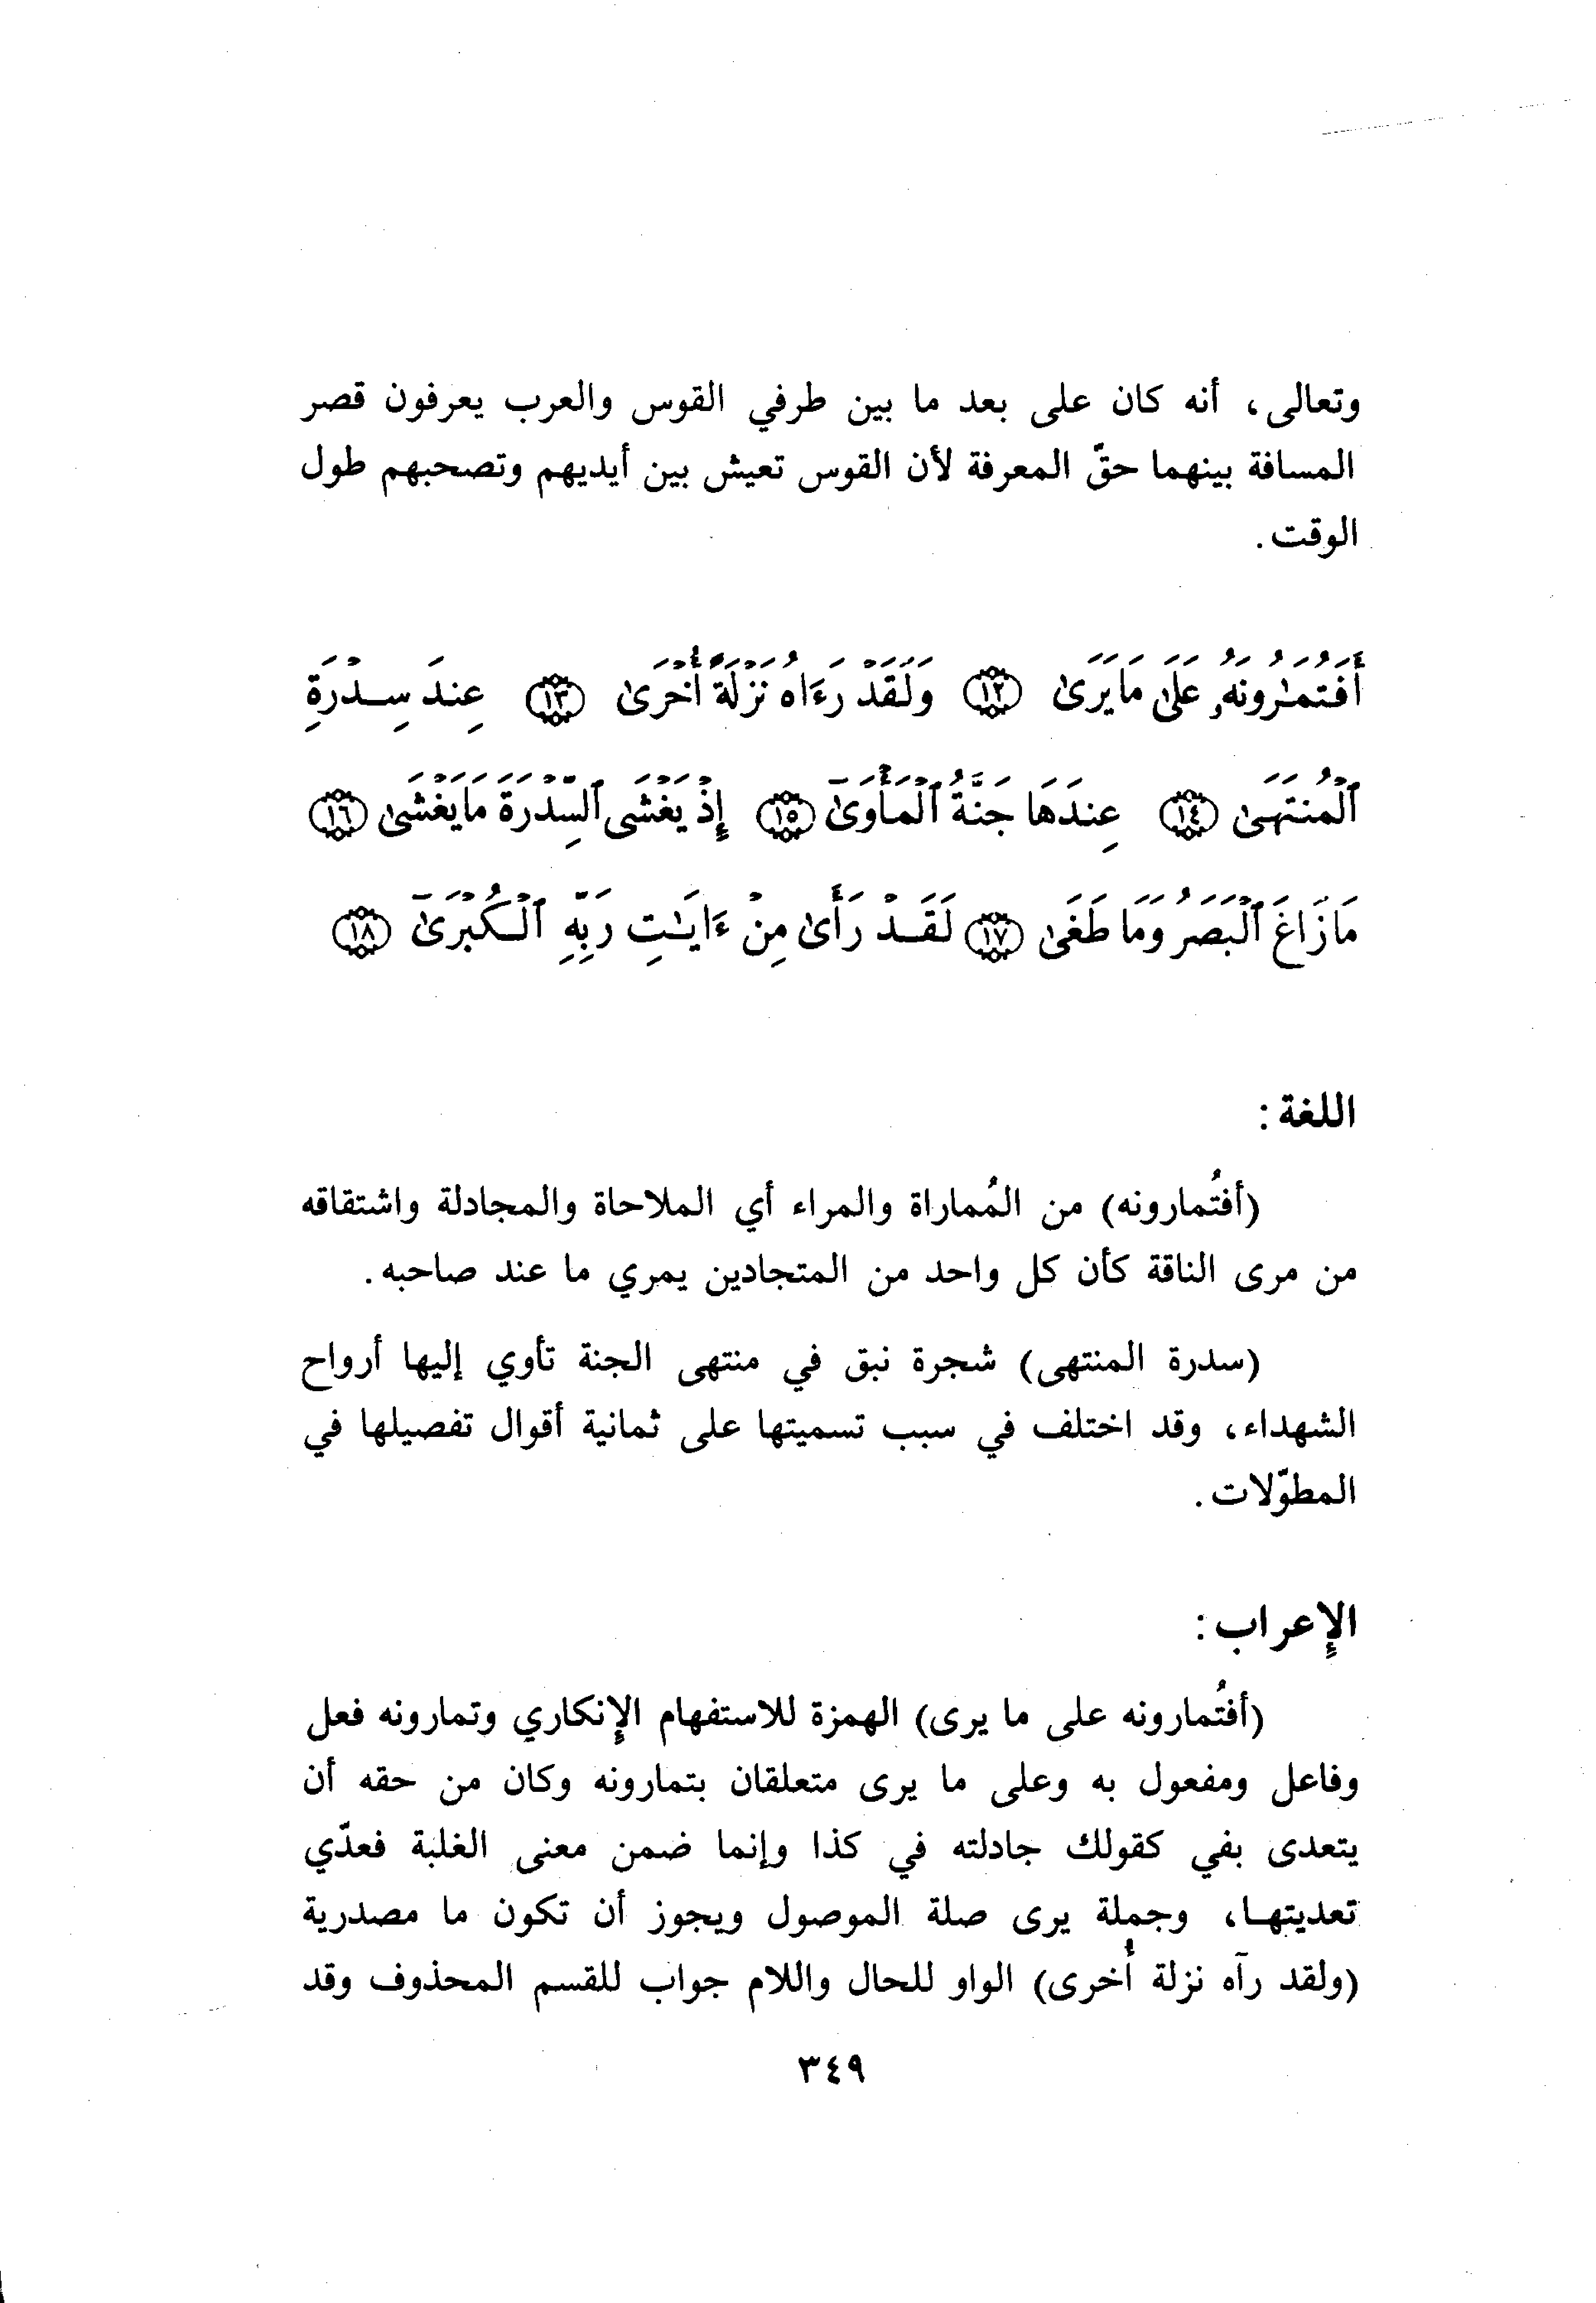 وتعالى، أنه كان على بعد ما بين طرفي القوس والعرب يعرفون قصر
المسافة بينهما حقّ المعرفة لأن القوس تعيش بين أيديهم وتصحبهم طول
الوقت.
أَفَتُمَٰرُونَهُۥ عَلَىٰ مَا يَرَىٰ ١٢ وَلَقَدْ رَءَاهُ نَزْلَةً أُخْرَىٰ ١٣ عِندَ سِدْرَةِ
ٱلْمُنتَهَىٰ ١٤ عِندَهَا جَنَّةُ ٱلْمَأْوَىٰٓ ١٥ إِذْ يَغْشَى ٱلسِّدْرَةَ مَا يَغْشَىٰ ١٦
مَا زَاغَ ٱلْبَصَرُ وَمَا طَغَىٰ ١٧ لَقَدْ رَأَىٰ مِنْ ءَايَٰتِ رَبِّهِ ٱلْكُبْرَىٰٓ ١٨
اللغة:
(أفتُمارونه) من المُماراة والمراء أي الملاحاة والمجادلة واشتقاقه
من مرى الناقة كأن كل واحد من المتجادين يمري ما عند صاحبه.
(سدرة المنتهى) شجرة نبق في منتهى الجنة تأوي إليها أرواح
الشهداء، وقد اختلف في سبب تسميتها على ثمانية أقوال تفصيلها في
المطوّلات.
الإعراب:
(أفتُمارونه على ما يرى) الهمزة للاستفهام الإنكاري وتمارونه فعل
وفاعل ومفعول به وعلى ما يرى متعلقان بتمارونه وكان من حقه أن
يتعدى بفي كقولك جادلته في كذا وإنما ضمن معنى الغلبة فعدّي
تعديتها، وجملة يرى صلة الموصول ويجوز أن تكون ما مصدرية
(ولقد رآه نزلة أُخرى) الواو للحال واللام جواب للقسم المحذوف وقد
٣٤٩